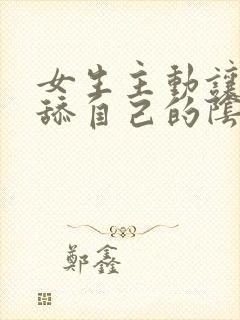 女生主動讓
舔自己的陰
鄭鑫